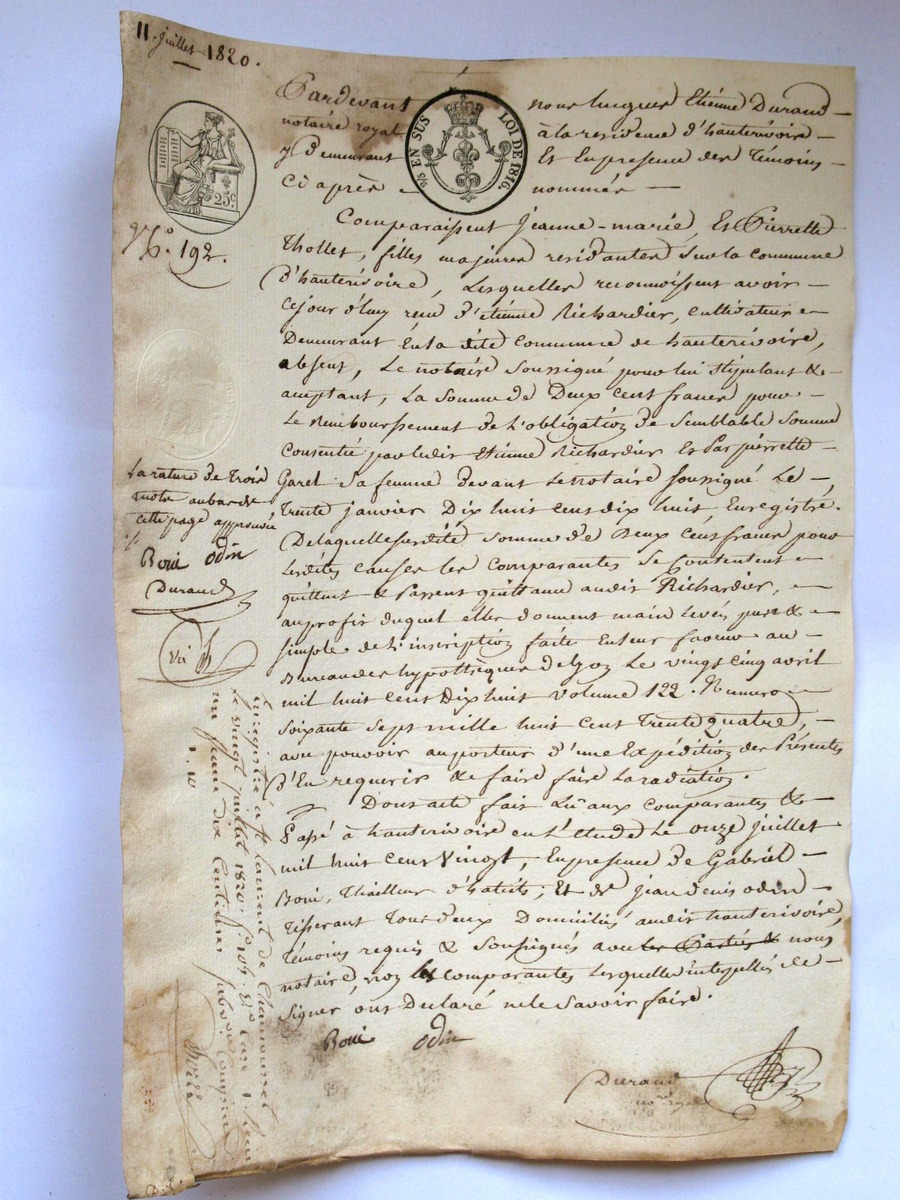 11. juillet 1820.
Pardevant nous Étiénne Durand
notaire royal à la residence d'hauterivoire
y demeurant Et Enpresence des Témoins
Ci après nommés
EN SUS LOI DE 1816.
25c
N.º 192.
Comparaissent Jeanne-marie, Et Pierrette
Thollet, filles majeures residantes Sur la Commune
d'hauterivoire, Lesquelles reconnoissent avoir
Cejour d'huy reçu d'étiénne Richardier, cultivateur
Demeurant En la dite Commune de hauterivoire,
absent, Le notaire Soussigné pour lui Stipulant &
acceptant, La Somme de Deux Cent francs pour
Le Remboursement de L'obligation de Semblable Somme
Consentie par ledit Etiénne Richardier Et Par pierrette
Garel Sa femme Devant Lenotaire Soussigné Le
Trente janvier Dix huit Cent dix huit, Enregistré.
Delaquelle susdite Somme de Deux Cent francs pour
Lesdites Causes Les Comparantes Se Contentent
quittent & Passent quittance audit Richardier,
auprofit duquel elles donnent main levée pure &
Simple de L'inscription faite Enleur faveur au
Bureau des hypothèques de Lyon Le vingt Cinq avril
mil huit Cent Dix huit volume 122. Numero
Soixante Sept mille huit Cent Trente quatre,
avec pouvoir au porteur d'une Expédition des Présentes
d'En requerir & faire faire La radiation.
Dont acte fait Lu aux Comparantes &
Passé à hauterivoire en L'étude Le onze juillet
mil huit Cent Vingt, Enpresence de Gabriel
Boni, Thailleur d'habits; Et de jean denis odin
Tisserant Tous deux Domiciliés audit hauterivoire,
Témoins requis & Soussignés avec les Parties & nous
notaire, non les comparantes Lesquelles interpellés de
Signer ont Déclaré nele Savoir faire.
Boni odin
Durand
no.re royal
La rature de Trois
mots au bas de
cette page approuvée
Boni odin
Durand
Enregistré à St Laurent de Chamousset
le vingt juillet 1820. fº 106
un franc dix Centimes